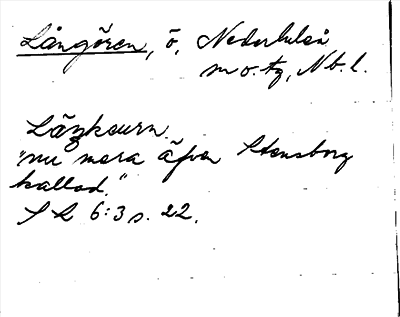 Långören, ö, Nederluleå
m o. tg, Nb. l.
Längheurn.
"nu mera äfven Stensborg
kallad."
S L 6:3 s. 22.